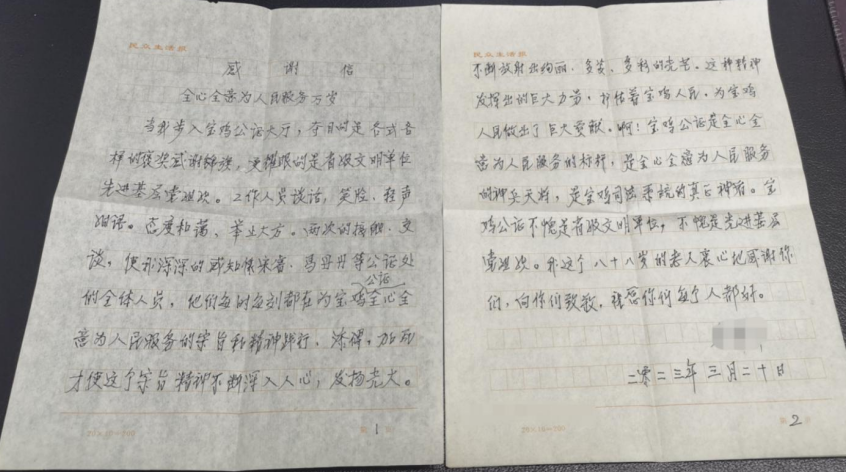 民众生活报
感谢信
全心全意为人民服务万岁
当我步入宝鸡公证大厅，夺目的是各式各
样的获奖感谢锦旗，更耀眼的是省级文明单位
先进基层党组织。工作人员谈话，笑脸，轻声
细语。态度和蔼、举止大方。两次的接触、交
谈，使我深深的感知侯来春、马丹丹等公证处
公证
的全体人员，他们每时每刻都在为宝鸡全心全
意为人民服务的宗旨和精神践行、深耕，
才使这个宗旨精神不断深入人心，发扬光大。
1
民众生活报
不断放射出绚丽、多姿、多彩的光芒。这种精神
发挥出的巨大力量，护佑着宝鸡人民，为宝鸡
人民做出了巨大贡献。啊！宝鸡公证是全心全
意为人民服务的标杆，是全心全意为人民服务
的神兵天将，是宝鸡司法系统的真正神探。宝
鸡公证不愧是省级文明单位，不愧是先进基层
党组织。我这个八十八岁的老人衷心地感谢你
们，向你们致敬，祝愿你们每个人都好。
二零二三年三月二十日
第2